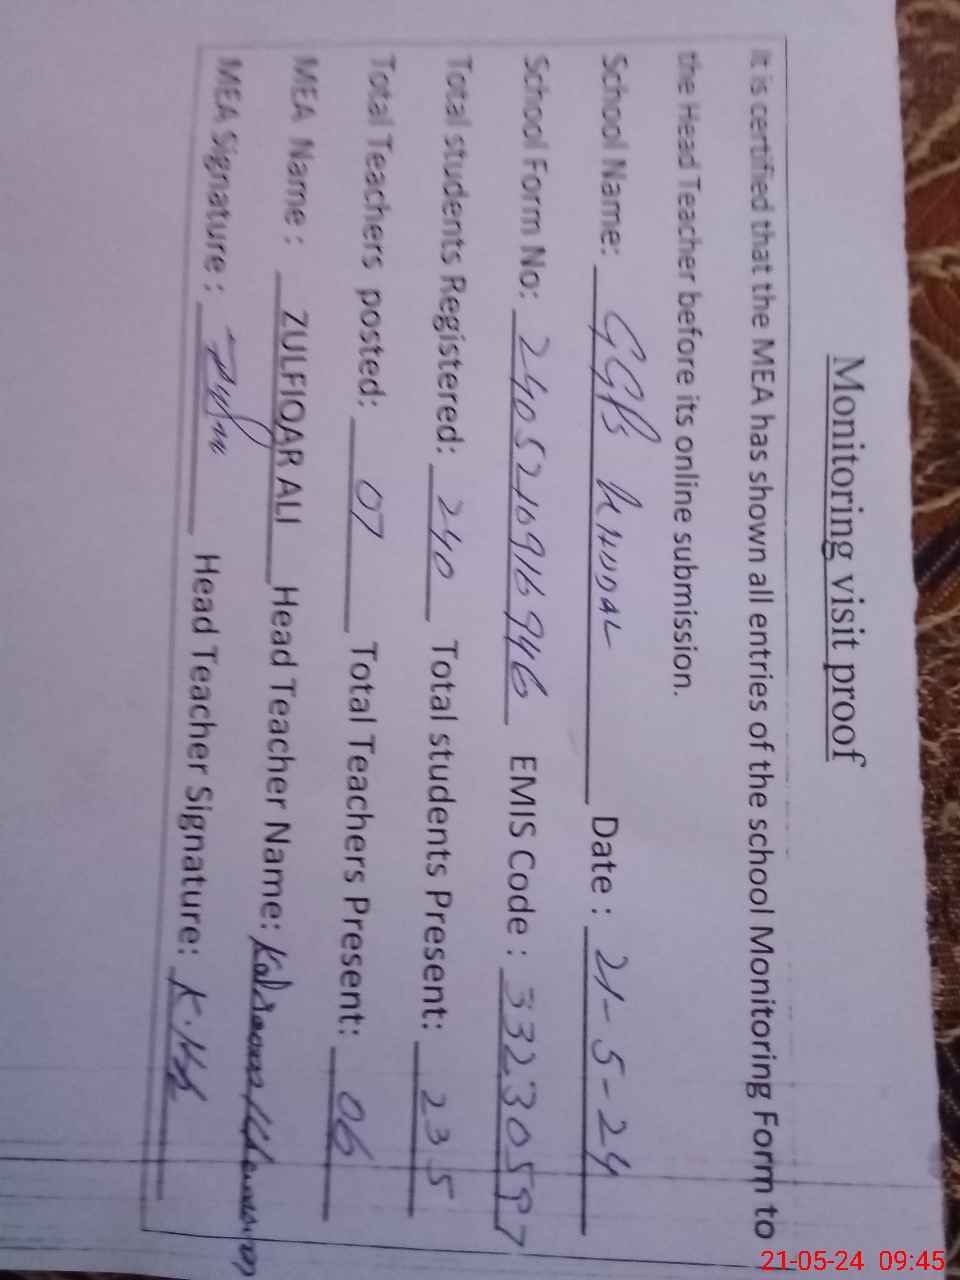 Monitoring visit proof
It is certified that the MEA has shown all entries of the school Monitoring Form to
the Head Teacher before its online submission.
School Name: GGPS Date: 21-5-24
School Form No: 2405210916946 EMIS Code: 33230597
Total students Registered: 240 Total students Present: 235
Total Teachers posted: 07 Total Teachers Present: 06
MEA Name: ZULFIQAR ALI Head Teacher Name:
MEA Signature: Head Teacher Signature:
21-05-24 09:45